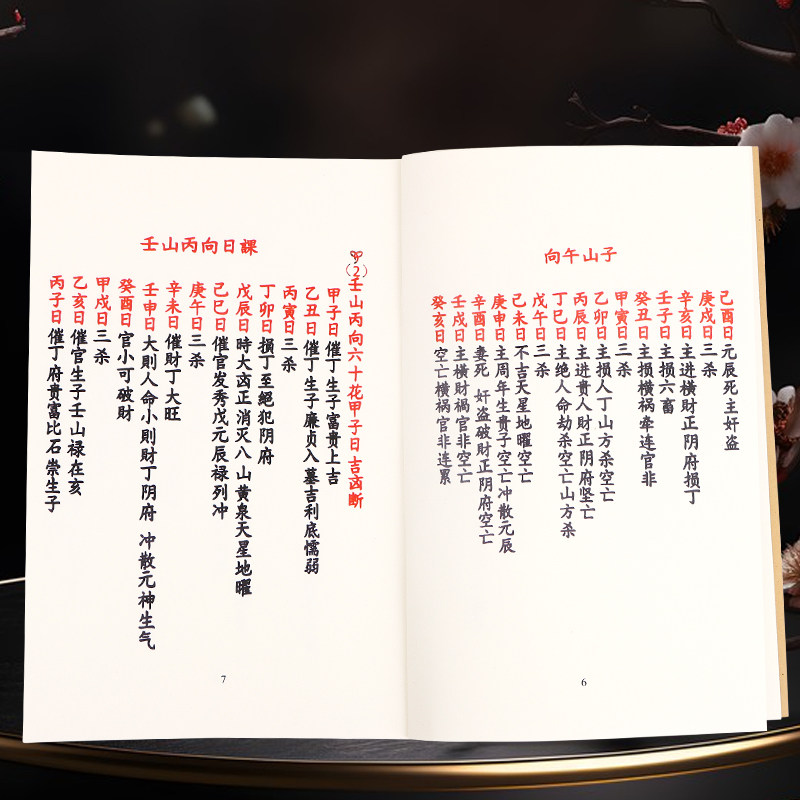 子山午向
己酉日元辰死主奸盗
庚戌日三杀
辛亥日主进橫財正阴府损丁
壬子日主损六畜
癸丑日主损橫祸牵连官非
甲寅日三杀
乙卯日主损人丁山方杀空亡
丙辰日主进貴人財正阴府坚亡
丁巳日主绝人命劫杀空亡山方杀
戊午日三杀
己未日不吉天星地曜空亡
庚申日主周年生貴子空亡冲散元辰
辛酉日妻死 奸盗破財正阴府空亡
壬戌日主橫財禍官非空亡
癸亥日空亡橫祸官非连累
6
壬山丙向日課
(2)壬山丙向六十花甲子日吉凶断
甲子日催丁生子富貴上吉
乙丑日催丁生子廉贞入墓吉利底懦弱
丙寅日三杀
丁卯日损丁至絕犯阴府
戊辰日時大凶正消灭八山黄泉天星地曜
己巳日催官发秀戊元辰禄列冲
庚午日三杀
辛未日催財丁大旺
壬申日大則人命小則財丁阴府 冲散元神生气
癸酉日官小可破財
甲戌日三杀
乙亥日催官生子壬山禄在亥
丙子日催丁府貴富比石崇生子
7